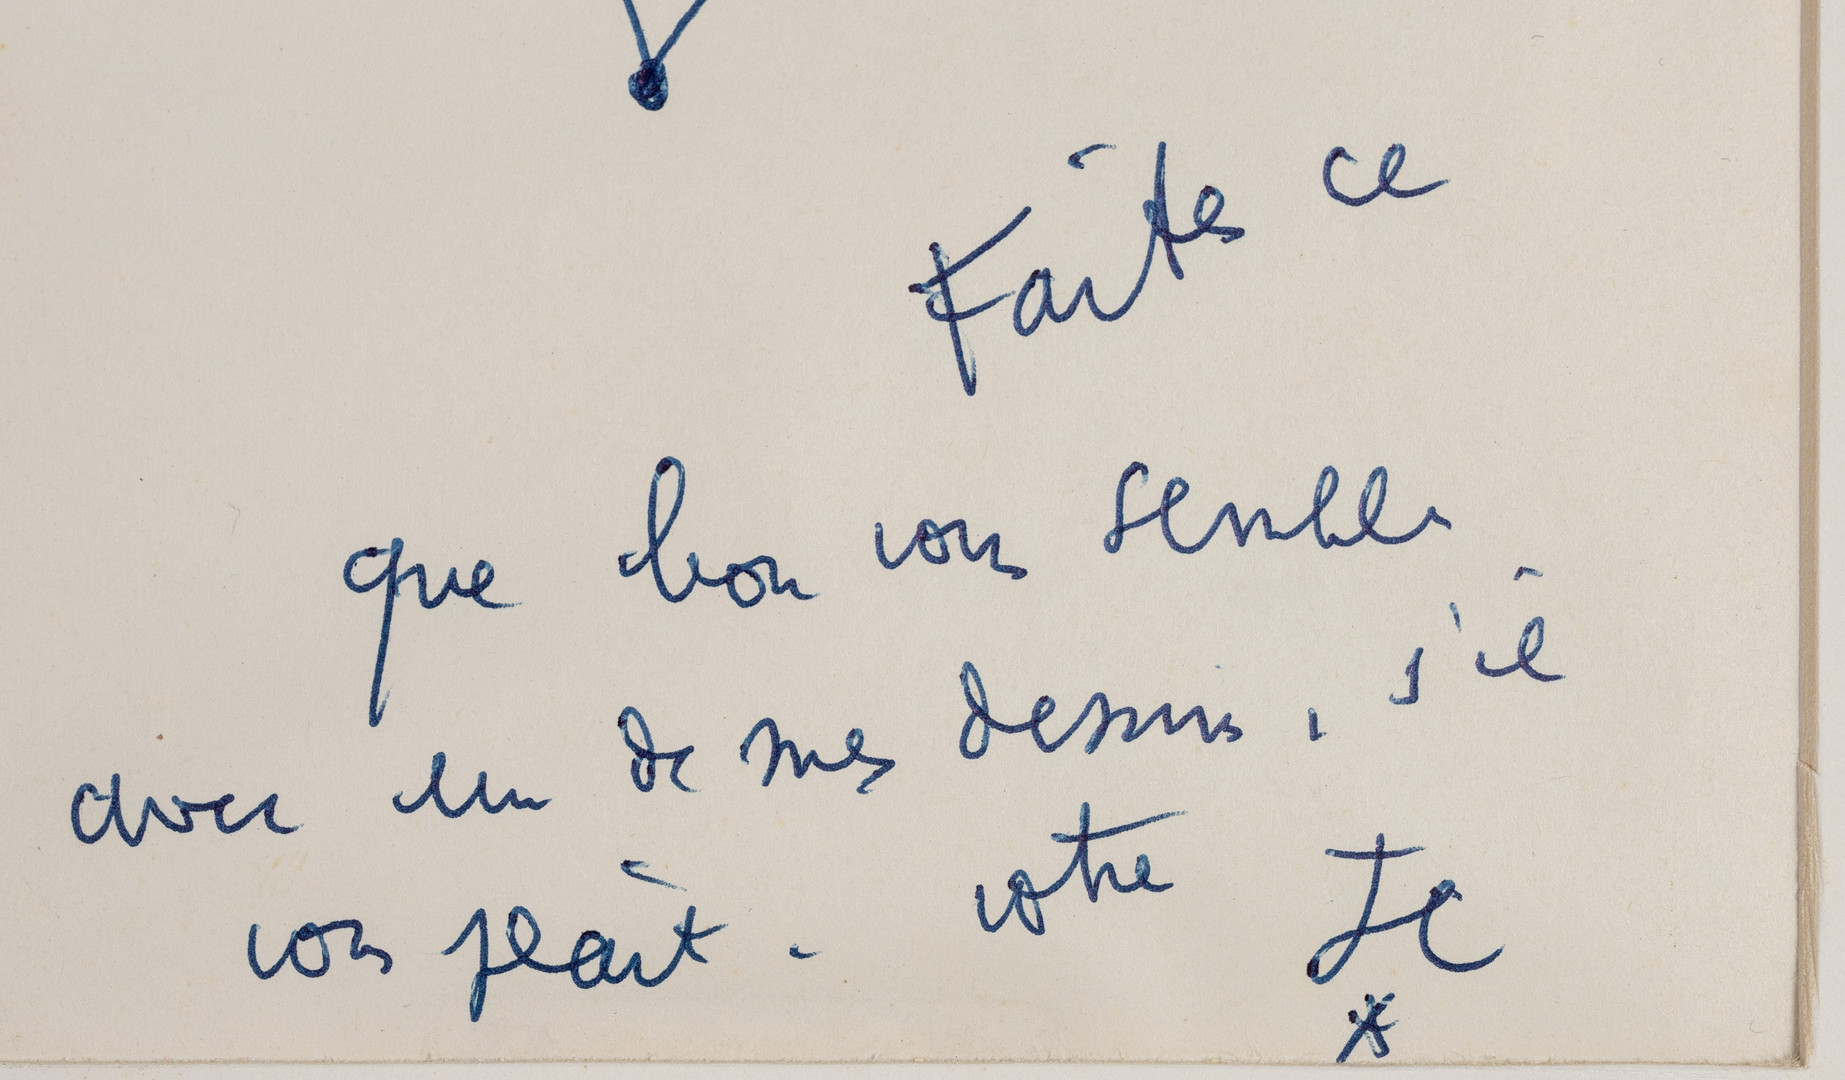 Faites ce
que bon vous semble
avec un de mes dessins, s'il
vous plaît. votre JC
*